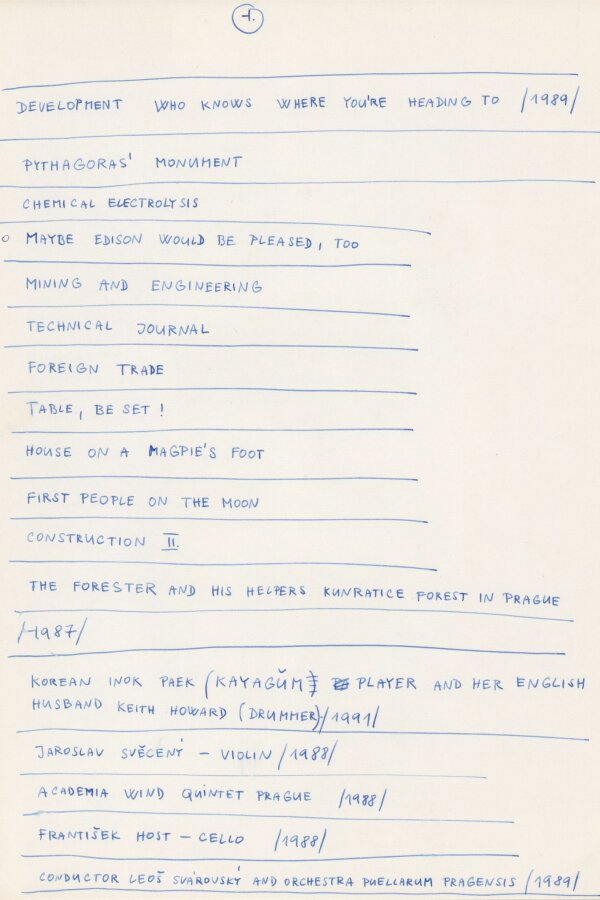 1.
DEVELOPMENT WHO KNOWS WHERE YOU'RE HEADING TO /1989/
PYTHAGORAS' MONUMENT
CHEMICAL ELECTROLYSIS
o MAYBE EDISON WOULD BE PLEASED, TOO
MINING AND ENGINEERING
TECHNICAL JOURNAL
FOREIGN TRADE
TABLE, BE SET!
HOUSE ON A MAGPIE'S FOOT
FIRST PEOPLE ON THE MOON
CONSTRUCTION II.
THE FORESTER AND HIS HELPERS KUNRATICE FOREST IN PRAGUE
/1987/
KOREAN INOK PAEK (KAYAGŬM) PLAYER AND HER ENGLISH
HUSBAND KEITH HOWARD (DRUMMER)/1991/
JAROSLAV SVĚCENÝ – VIOLIN /1988/
ACADEMIA WIND QUINTET PRAGUE /1988/
FRANTIŠEK HOST – CELLO /1988/
CONDUCTOR LEOŠ SVÁROVSKÝ AND ORCHESTRA PUELLARUM PRAGENSIS /1989/